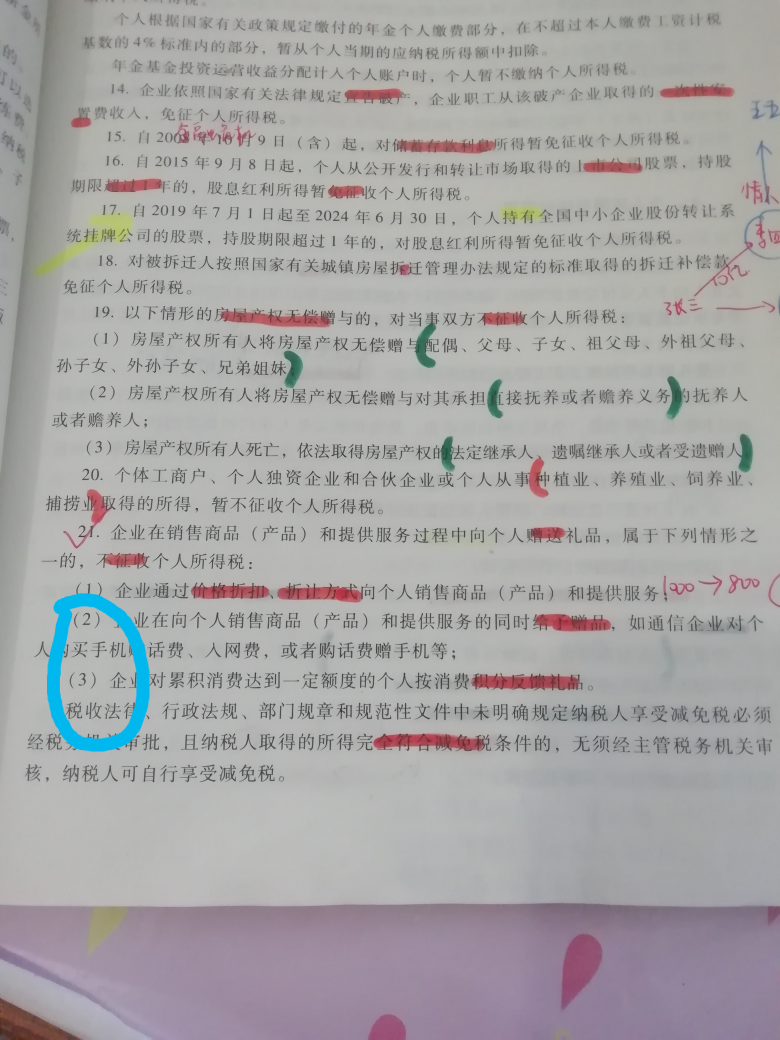 个人根据国家有关政策规定缴付的年金个人缴费部分，在不超过本人缴费工资计税
基数的4%标准内的部分，暂从个人当期的应纳税所得额中扣除。
年金基金投资运营收益分配计入个人账户时，个人暂不缴纳个人所得税。
14. 企业依照国家有关法律规定宣告破产，企业职工从该破产企业取得的一次性安
置费收入，免征个人所得税。
15. 自2008年10月9日（含）起，对储蓄存款利息所得暂免征收个人所得税。
16. 自2015年9月8日起，个人从公开发行和转让市场取得的上市公司股票，持股
期限超过1年的，股息红利所得暂免征收个人所得税。
17. 自2019年7月1日起至2024年6月30日，个人持有全国中小企业股份转让系
统挂牌公司的股票，持股期限超过1年的，对股息红利所得暂免征收个人所得税。
18. 对被拆迁人按照国家有关城镇房屋拆迁管理办法规定的标准取得的拆迁补偿款
免征个人所得税。
19. 以下情形的房屋产权无偿赠与的，对当事双方不征收个人所得税：
（1）房屋产权所有人将房屋产权无偿赠与配偶、父母、子女、祖父母、外祖父母、
孙子女、外孙子女、兄弟姐妹；
（2）房屋产权所有人将房屋产权无偿赠与对其承担直接抚养或者赡养义务的抚养人
或者赡养人；
（3）房屋产权所有人死亡，依法取得房屋产权的法定继承人、遗嘱继承人或者受遗赠人
20. 个体工商户、个人独资企业和合伙企业或个人从事种植业、养殖业、饲养业、
捕捞业取得的所得，暂不征收个人所得税。
21. 企业在销售商品（产品）和提供服务过程中向个人赠送礼品，属于下列情形之
一的，不征收个人所得税：
（1）企业通过价格折扣、折让方式向个人销售商品（产品）和提供服务；
1000→800
（2）企业在向个人销售商品（产品）和提供服务的同时给予赠品，如通信企业对个
人购买手机赠话费、入网费，或者购话费赠手机等；
（3）企业对累积消费达到一定额度的个人按消费积分反馈礼品。
税收法律、行政法规、部门规章和规范性文件中未明确规定纳税人享受减免税必须
经税务机关审批，且纳税人取得的所得完全符合减免税条件的，无须经主管税务机关审
核，纳税人可自行享受减免税。
情人
张三